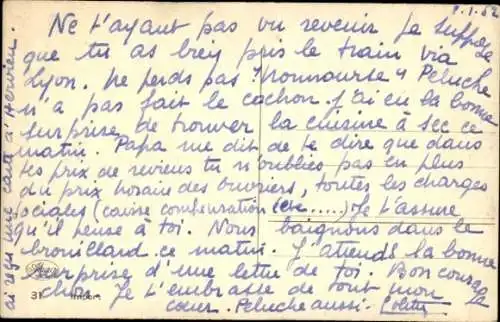 9.1.62
Ne t'ayant pas vu revenir je suppose
que tu as bien pris le train via
Lyon. Ne perds pas "Nounourse" Peluche
n'a pas fait le cochon. J'ai eu la bonne
surprise de trouver la cuisine à sec ce
matin. Papa me dit de te dire que dans
tes prix de reviens tu n'oublies pas en plus
du prix horaire des ouvriers, toutes les charges
sociales (caisse compensation etc .....) Je t'assure
qu'il pense à toi. Nous baignons dans le
brouillard ce matin. J'attends la bonne
surprise d'une lettre de toi. Bon courage
chou. Je t'embrasse de tout mon
cœur. Peluche aussi. Colette
ai reçu une carte d'
31
Import